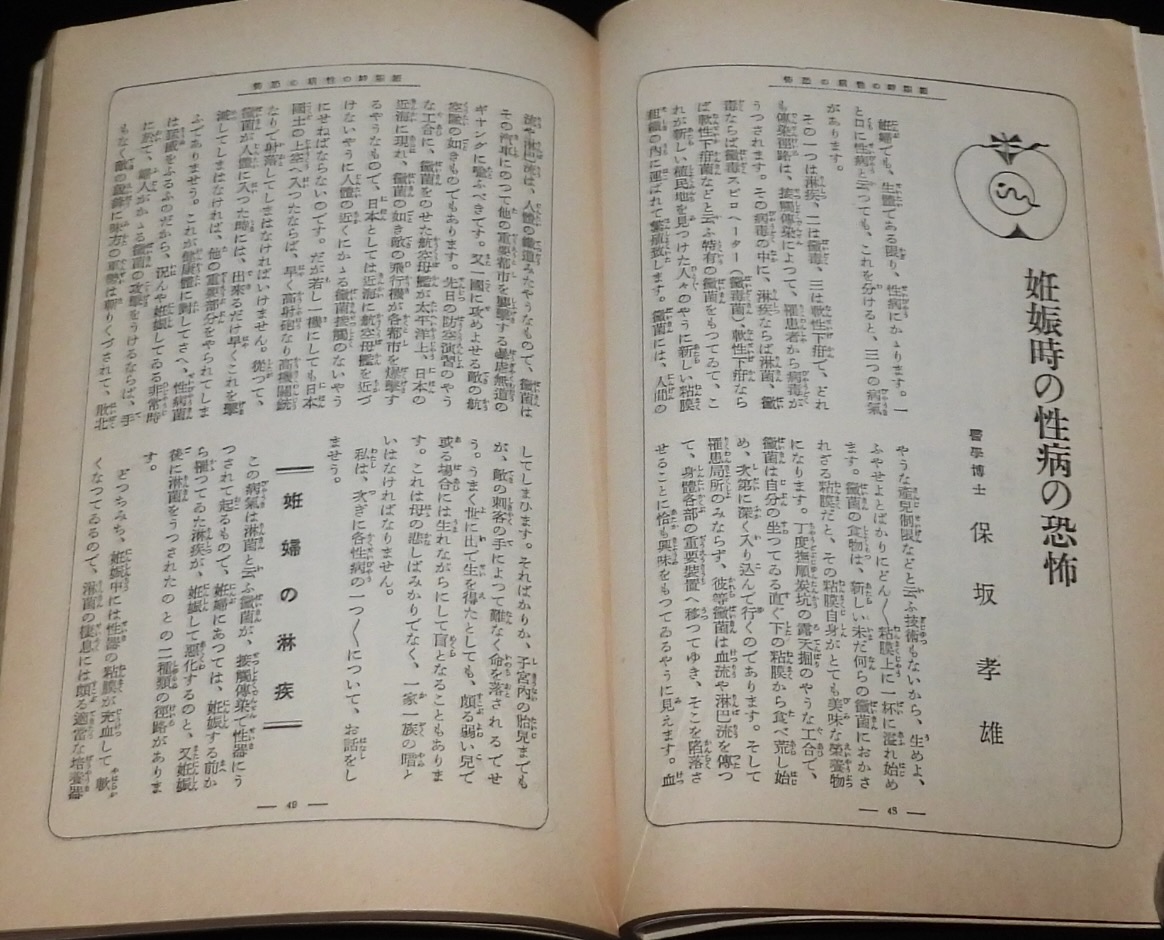 妊娠時の性病の恐怖
醫學博士 保坂孝雄
妊婦でも、生體である限り、性病にかゝります。一
と口に性病と云つても、これを分けると、三つの病氣
があります。
その一つは淋疾、二は黴毒、三は軟性下疳で、どれ
も傳染徑路は、接觸傳染によつて、罹患者から病毒が
うつされます。その病毒の中に、淋疾ならば淋菌、黴
毒ならば黴毒スピロヘーター(黴毒菌)、軟性下疳なら
ば軟性下疳菌などと云ふ特有の黴菌をもつてゐて、こ
れが新しい植民地を見つけた人々のやうに新しい粘膜
組織の內に運ばれて繁殖致します。黴菌には、人間の
やうな產兒制限などと云ふ技術もないから、生めよ、
ふやせよとばかりにどん〱粘膜上に一杯に溢れ始め
ます。黴菌の食物は、新しい未だ何らの黴菌におかさ
れざる粘膜だと、その粘膜自身がとても美味な榮養物
になります。丁度撫順炭坑の露天掘のやうな工合で、
黴菌は自分の坐つてゐる直ぐ下の粘膜から食べ荒し始
め、次第に深く入り込んで行くのであります。そして
罹患局所のみならず、彼等黴菌は血流や淋巴流を傳つ
て、身體各部の重要裝置へ移つてゆき、そこを陷落さ
せることに恰も興味をもつてゐるやうに見えます。血
— 48 —
流や淋巴流は、人體の鐵道みたやうなもので、黴菌は
その汽車にのつて他の重要都市を襲擊する暴虐無道の
ギヤングに喩ふべきです。又一國に攻めよせる敵の航
空隊の如きものでもあります。先日の防空演習のやう
な工合に、黴菌をのせた航空母艦が太平洋上、日本の
近海に現れ、黴菌の如き敵の飛行機が各都市を爆擊す
るやうなもので、日本としては近海に航空母艦を近づ
けないやうに人體の近くにかゝる黴菌接觸のないやう
にせねばならないのです。だが若し一機にしても日本
國土の上空へ入つたならば、早く高射砲なり高機關銃
なりで射落してしまはなければいけません。從つて、
黴菌が人體に入つた時には、出來るだけ早くこれを擊
滅してしまはなければ、他の重要部分をやられてしま
ふでありませう。これが健康體に對してさへ、性病菌
は猛威をふるふのだから、況んや妊娠してゐる非常時
に於て、婦人がかゝる黴菌の攻擊をうけるならば、手
もなく敵の銳鋒に味方の軍勢は斬りくづされて、敗北
してしまひます。そればかりか、子宮內の胎兒までも
が、敵の刺客の手によつて難なく命を落されるでせ
う。うまく世に出で生を得たとしても、頗る弱い兒で
或る場合には生れながらにして盲となることもありま
す。これは母の悲しばみかりでなく、一家一族の暗と
いはなければなりません。
私は、次ぎに各性病の一つ〱について、お話をし
ませう。
妊婦の淋疾
この病氣は淋菌と云ふ黴菌が、接觸傳染で性器にう
つされて起るもので、妊婦にあつては、妊娠する前か
ら罹つてゐた淋疾が、妊娠して惡化するのと、又妊娠
後に淋菌をうつされたのとの二種類の徑路がありま
す。
どつちみち、妊娠中には性器の粘膜が充血して軟か
くなつてゐるので、淋菌の棲息には頗る適當な培養器
— 49 —